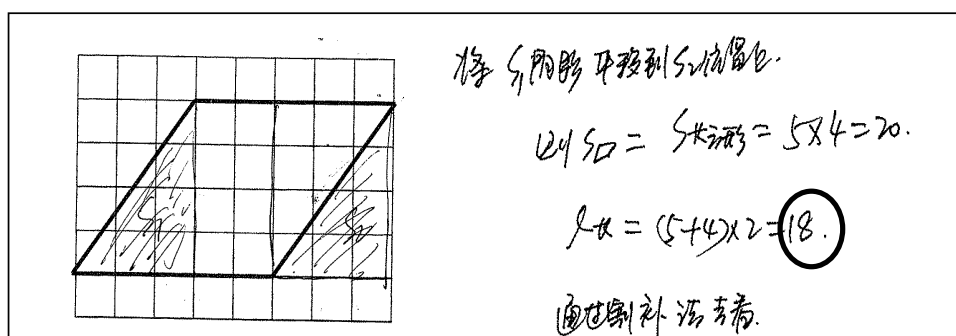 将 S₁阴影 平移到 S₂位置上.
则 S▱ = S长方形 = 5×4=20.
l长 = (5+4)×2=18.
通过割补法去看.
S₁
S₂